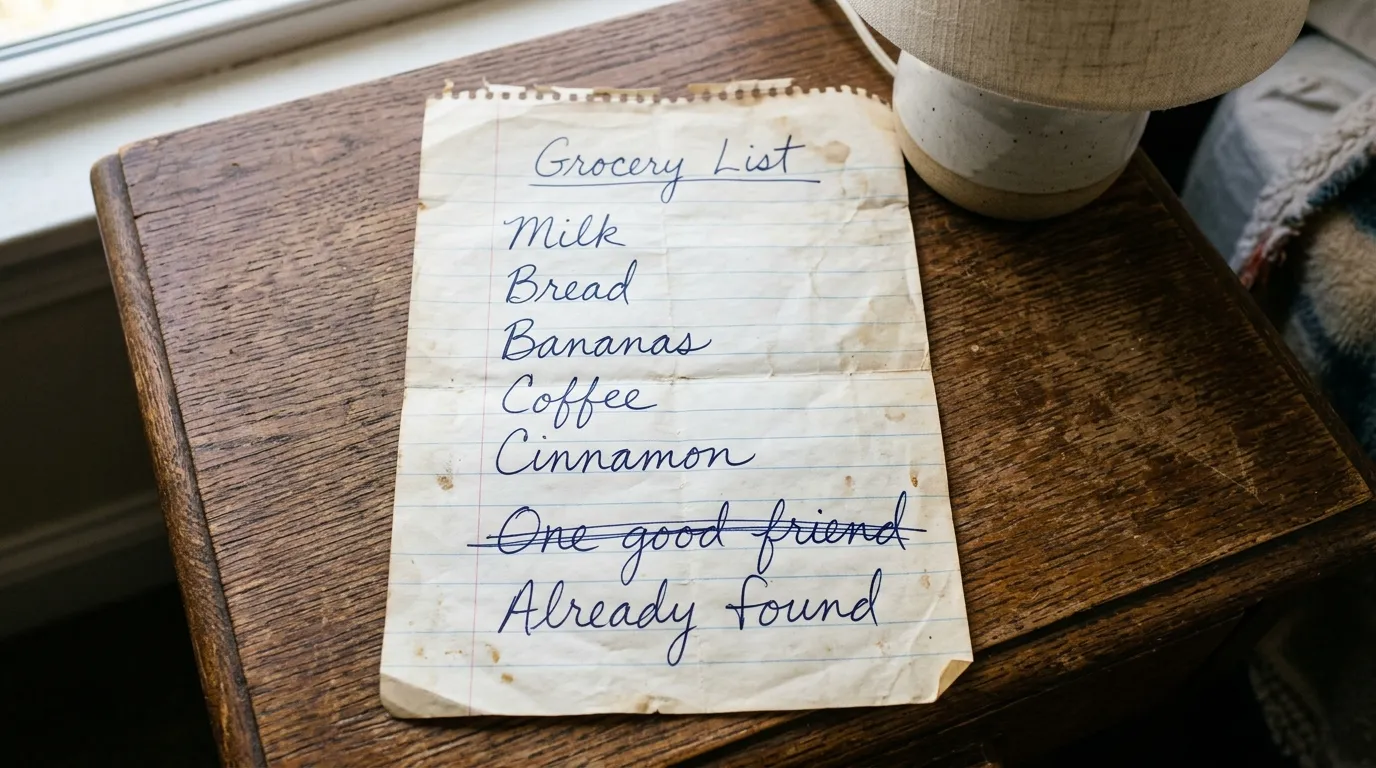 Grocery List
Milk
Bread
Bananas
Coffee
Cinnamon
One good friend
Already found